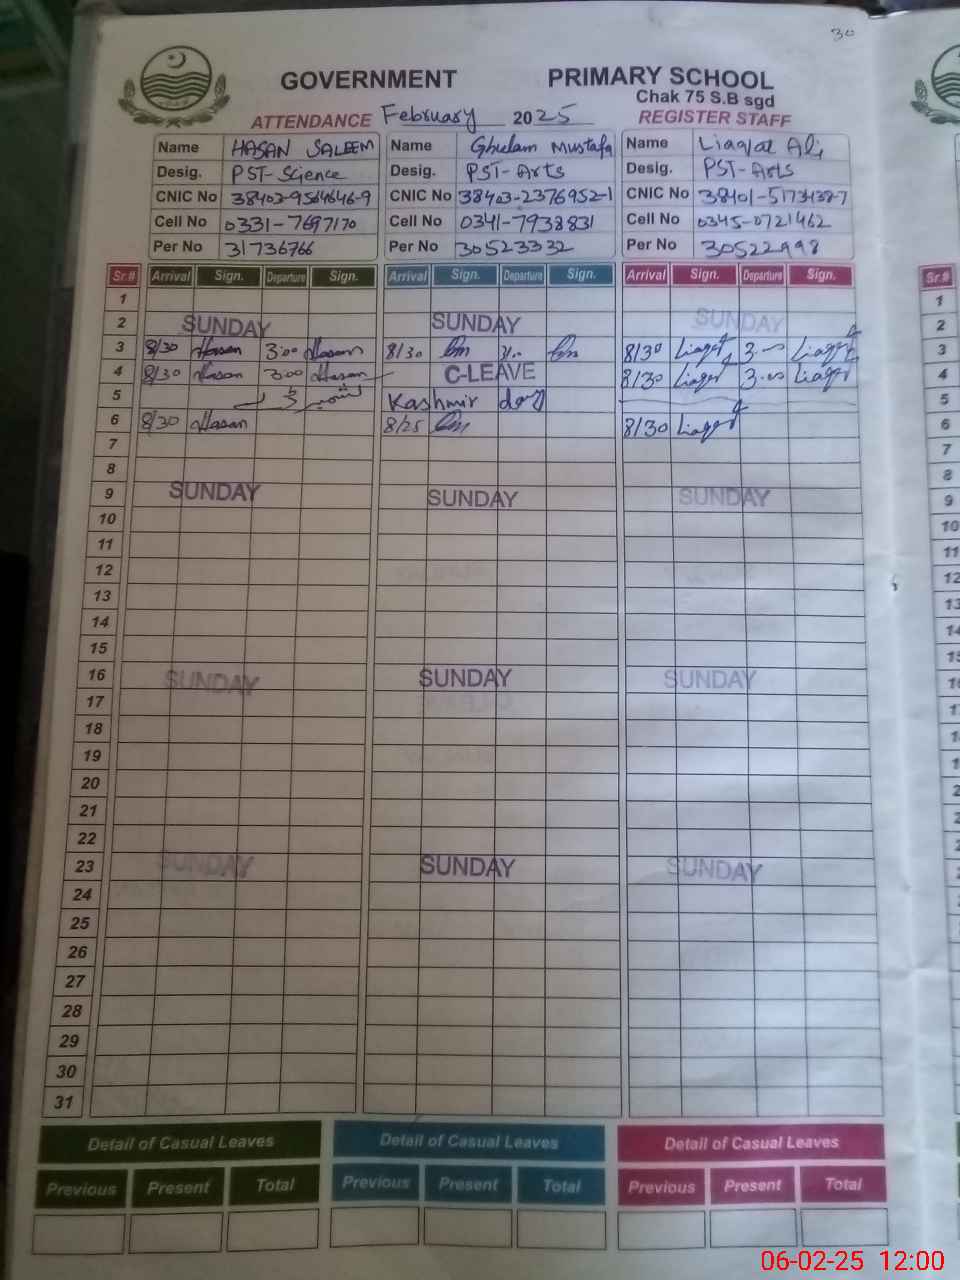 30
GOVERNMENT PRIMARY SCHOOL
Chak 75 S.B sgd
ATTENDANCE February 2025 REGISTER STAFF
Name HASAN SALEEM Name Ghulam Mustafa Name Liaqat Ali
Desig. PST-Science Desig. PST-Arts Desig. PST-Arts
CNIC No 38403-9564646-9 CNIC No 38403-2376952-1 CNIC No 38401-5173438-7
Cell No 0331-7697170 Cell No 0341-7938831 Cell No 0345-0721462
Per No 31736766 Per No 30523332 Per No 30522998
Sr.# Arrival Sign. Departure Sign. Arrival Sign. Departure Sign. Arrival Sign. Departure Sign. Sr.#
1 1
2 SUNDAY SUNDAY SUNDAY 2
3 8/30 Hasan 3:00 Hasan 8/30 3/00 8/30 Liaqat 3-00 Liaqat 3
4 8/30 Hasan 3:00 Hasan C-LEAVE 8/30 Liaqat 3-00 Liaqat 4
5 کشمیر ڈے Kashmir day 5
6 8/30 Hasan 8/25 8/30 Liaqat 6
7 7
8 8
9 SUNDAY SUNDAY SUNDAY 9
10 10
11 11
12 12
13 13
14 14
15 15
16 SUNDAY SUNDAY SUNDAY
17
18
19
20
21
22
23 SUNDAY SUNDAY SUNDAY
24
25
26
27
28
29
30
31
Detail of Casual Leaves Detail of Casual Leaves Detail of Casual Leaves
Previous Present Total Previous Present Total Previous Present Total
06-02-25 12:00